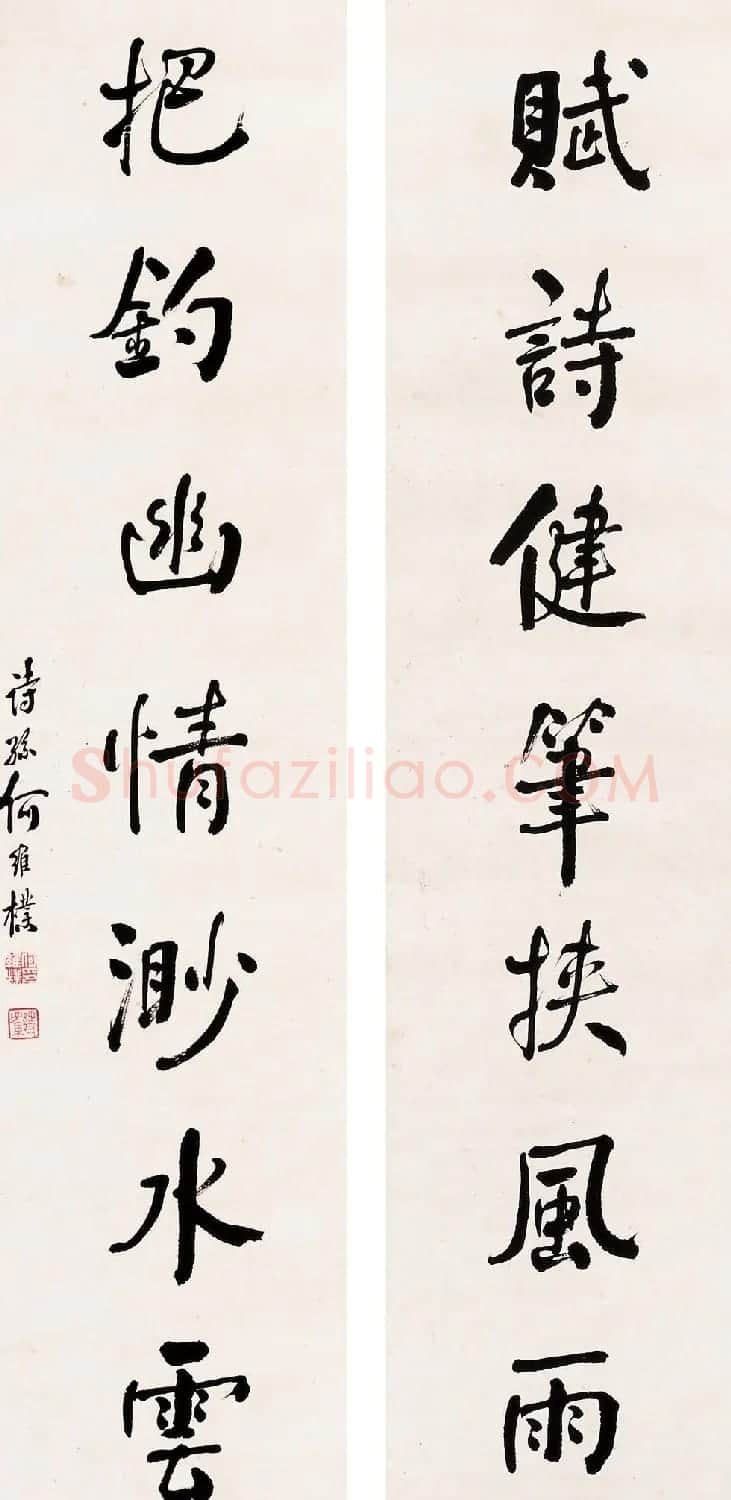 賦詩健筆挾風雨
把釣幽情渺水雲
詩孫何維樸
Shufaziliao.COM